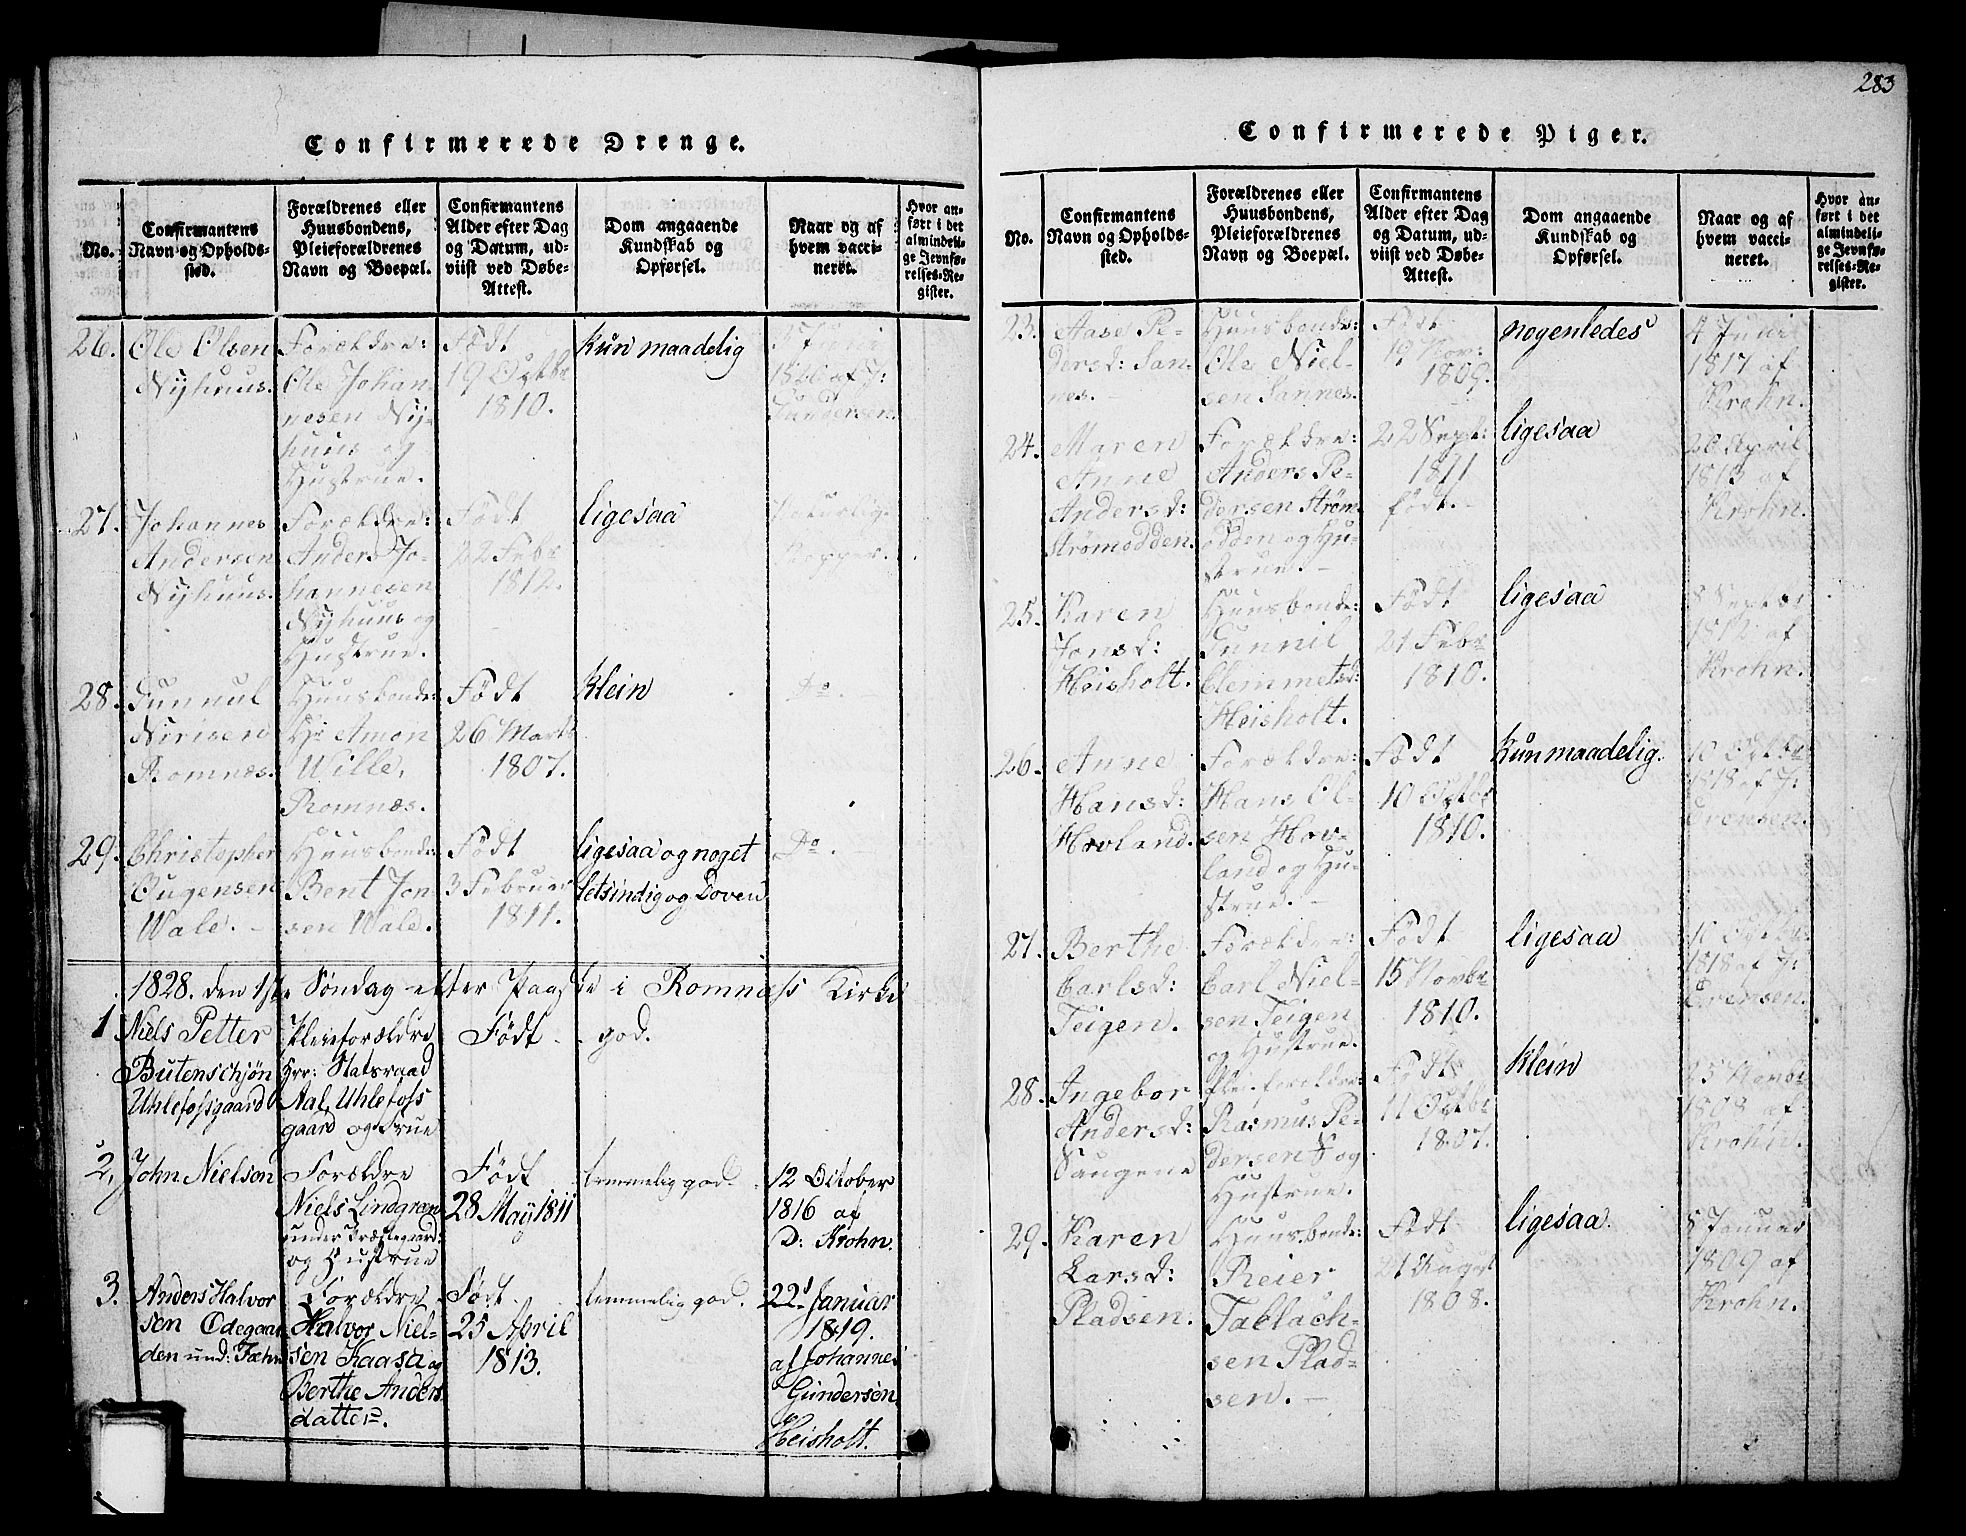 283
Confirmerede Drenge.
No.
Confirmantens
Navn og Opholds-
sted.
Forældrenes eller
Huusbondens,
Pleieforældrenes
Navn og Boepæl.
Confirmantens
Alder efter Dag
og Datum, ud-
viist ved Døbe-
Attest.
Dom angaaende
Kundskab og
Opførsel.
Naar og af
hvem vacci-
neret.
Hvor an-
ført i det
almindeli-
ge Jevnfø-
relses-Re-
gister.
26.
Ole Olsen
Nyhuus.
Forældre:
Ole Johan-
nesen Ny-
huus og
Hustrue.
Født
19 Octbr
1810.
kun maadelig
af J:
Gundersen.
27.
Johannes
Andersen
Nyhuus.
Forældre:
Anders Jo-
hannesen
Nyhuus og
Hustrue.
Født
22 Febr
1812.
ligesaa
28.
Gunnul
Nirisen
Romnæs.
Huusbonde:
Hr Amon
Wille,
Romnæs.
Født
26 Marts
1807.
klein
Do.
29.
Christopher
Ougensen
Wale. -
Huusbonde:
Bent Jon-
sen Wale.
Født
3 Februar
1811.
ligesaa og noget
letsindig og Doven
Do.
1828. den 1ste Søndag efter Paaske i Romnæss Kirke
1
Niels Petter
Butenschjøn
Uhlefossgaard
Pleieforældre
Hrr: Statsraad
Aal, Uhlefoss
gaard og Frue
Født
god.
2,
John Nielson
Forældre
Niels Lindgran
under Præstegaard:
og Hustrue
Født
28 May 1811
temmelig god.
12 October
1816 af
D: Krohn.
3.
Anders Halvor
sen Ødegaar
den und: Fæhn
Forældre
Halvor Niel-
sen Kaasa og
Berthe Anders
datter.
Født
25 April
1813.
temmelig god.
22 Januar
1819.
af Johannes
Gundersen
Heisholt.
Confirmerede Piger.
No.
Confirmantens
Navn og Opholds-
sted.
Forældrenes eller
Huusbondens,
Pleieforældrenes
Navn og Boepæl.
Confirmantens
Alder efter Dag
og Datum, ud-
viist ved Døbe-
Attest.
Dom angaaende
Kundskab og
Opførsel.
Naar og af
hvem vacci-
neret.
Hvor an-
ført i det
almindeli-
ge Jevnfø-
relses-Re-
gister.
23.
Aase Pe-
dersd: San-
nes.
Huusbonde:
Ole Niel-
sen Sannes.
Født
19 Nov:
1809.
nogenledes
4 Juni
1817 af
Krohn.
24.
Maren
Anne
Andersd:
Strømodden.
Forældre:
Anders Pe-
dersen Strøm-
odden og Hu-
strue. -
22 Sept:
1811
født. -
ligesaa
20 April
1813 af
Krohn.
25.
Karen
Jonsd:
Heisholt.
Huusbonde:
Gunnil
Clemmetsd:
Heisholt.
Født
21 Febr
1810.
ligesaa
8 Septbr
1812 af
Krohn.
26.
Anne
Hansd:
Hovland.
Forældre:
Hans Ol-
sen Hov-
land og Hu-
strue. -
Født
10 Octbr
1810.
Kun maadelig.
10 Octbr
1818 af J:
27.
Berthe
Carlsd:
Teigen.
Forældre:
Carl Niel-
sen Teigen
og Hustrue.
Født
15 Novbr
1810.
ligesaa
10 Octbr
1818 af J:
28.
Ingebor
Andersd:
Saugene
Pleieforældre:
Rasmus Pe-
dersen S og
Hustrue.
Født
11 Octbr
1807.
klein
25 Novbr
1808 af
Krohn.
29.
Karen
Larsd:
Pladsen.
Huusbonde:
Reier
Tablach-
sen Plad-
sen. -
Født
21 August
1808.
ligesaa.
8 Januar
1809 af
Krohn.